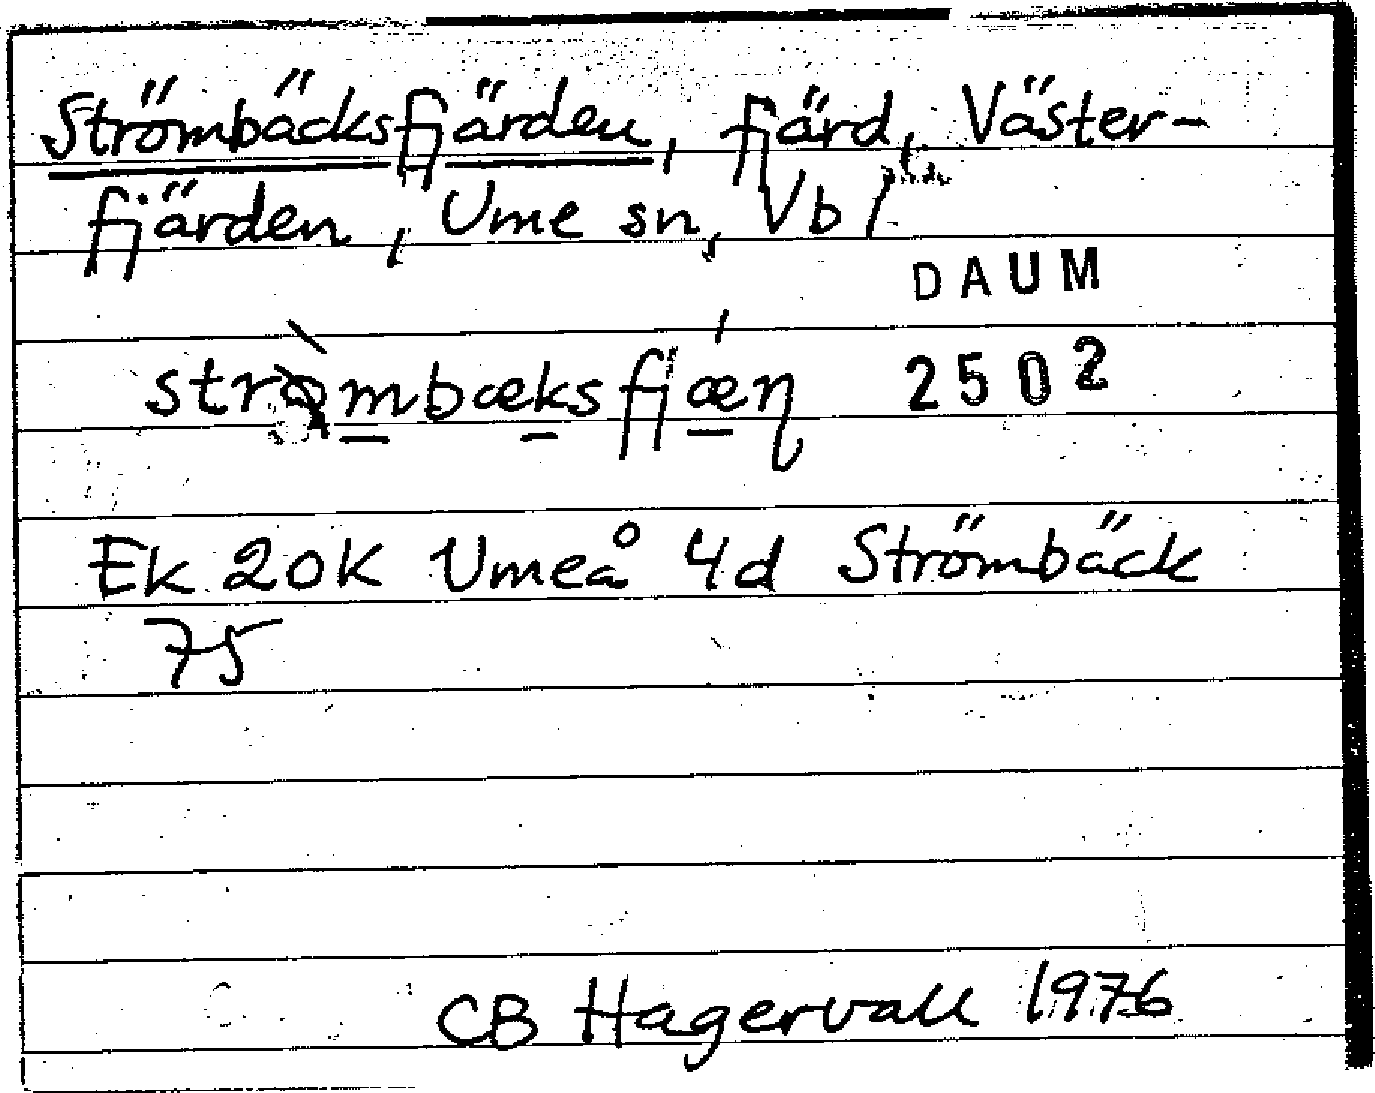 Strömbäcksfjärden, fjärd, Väster-
fjärden, Ume sn, Vb/
DAUM
2502
strømbæksfjæɳ
Ek 20K Umeå 4d Strömbäck
75
CB Hagervall 1976